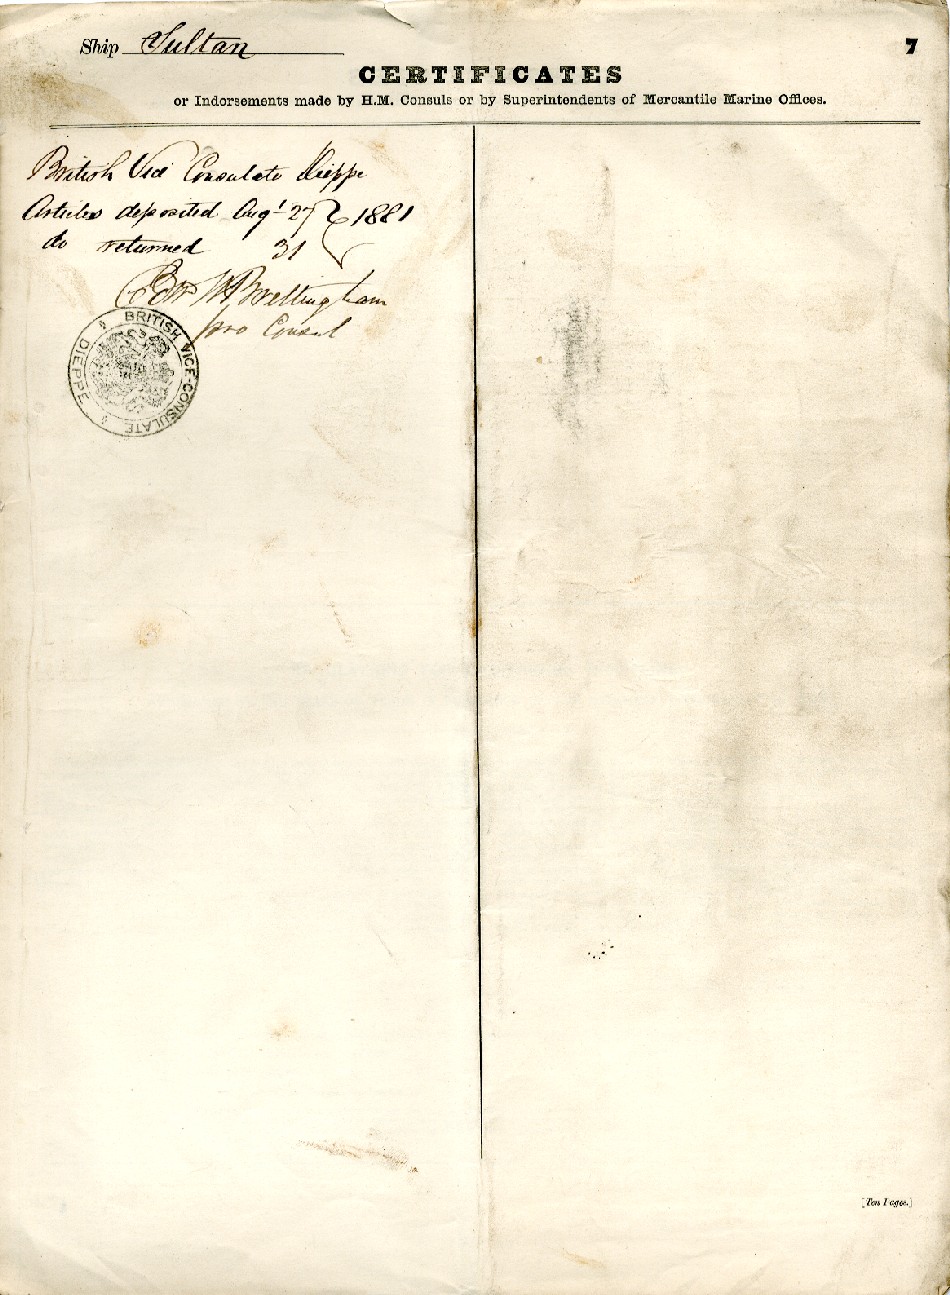 Ship Sultan
7
CERTIFICATES
or Indorsements made by H.M. Consuls or by Superintendents of Mercantile Marine Offices.
British Vice Consulate Dieppe
Articles deposited Augt 27 } 1881
do returned 31
W Brettingham
pro Consul
BRITISH VICE-CONSULATE
DIEPPE
[Ten Pages.]